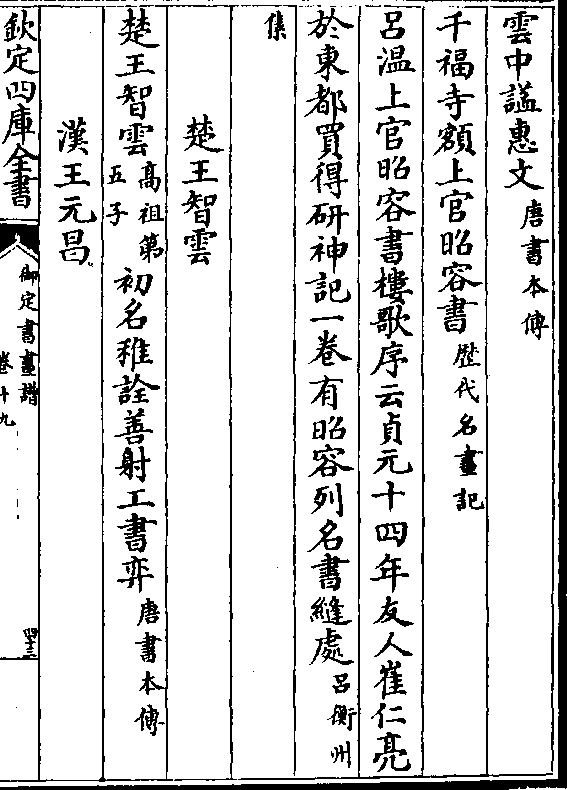 雲中諡惠文唐書本傳
千福寺額上官昭容書歷代名畫記
呂溫上官昭容書樓歌序云貞元十四年友人崔仁亮
於東都買得研神記一卷有昭容列名書縫處呂衡州
集
楚王智雲
楚王智雲高祖第五子初名稚詮善射工書弈唐書本傳
漢王元昌
欽定四庫全書
御定書畫譜
卷十九
四十三